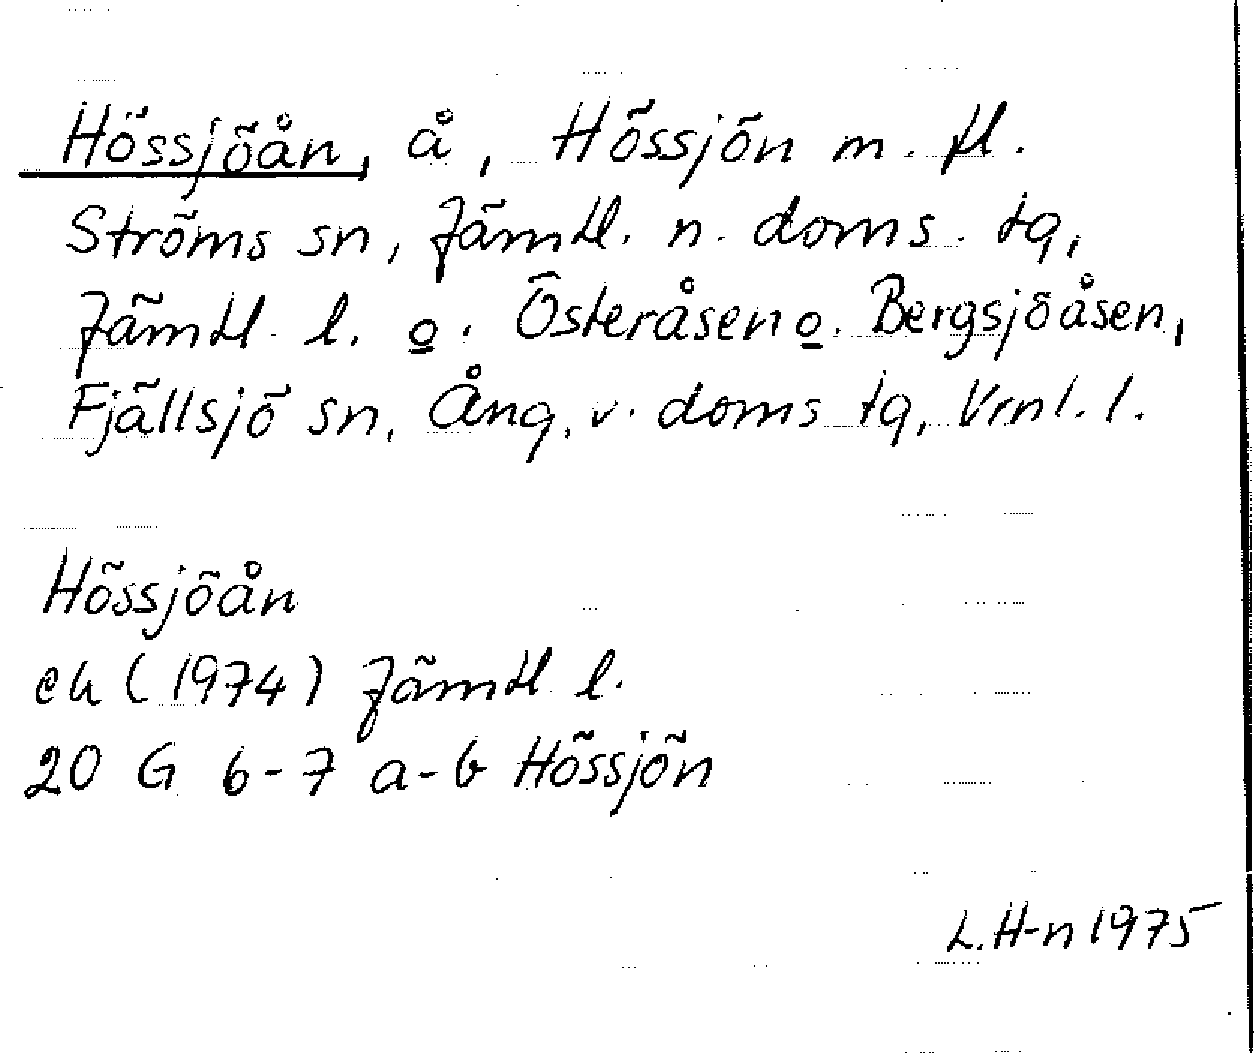 Hössjöån, å, Hössjön m. fl.
Ströms sn, Jämtl. n. doms. tg,
Jämtl. l. o. Österåsen o. Bergsjöåsen,
Fjällsjö sn, Ång. v. doms tg, Vrnl. l.
Hössjöån
ek (1974) Jämtl l.
20 G 6-7 a-b Hössjön
L. H-n 1975